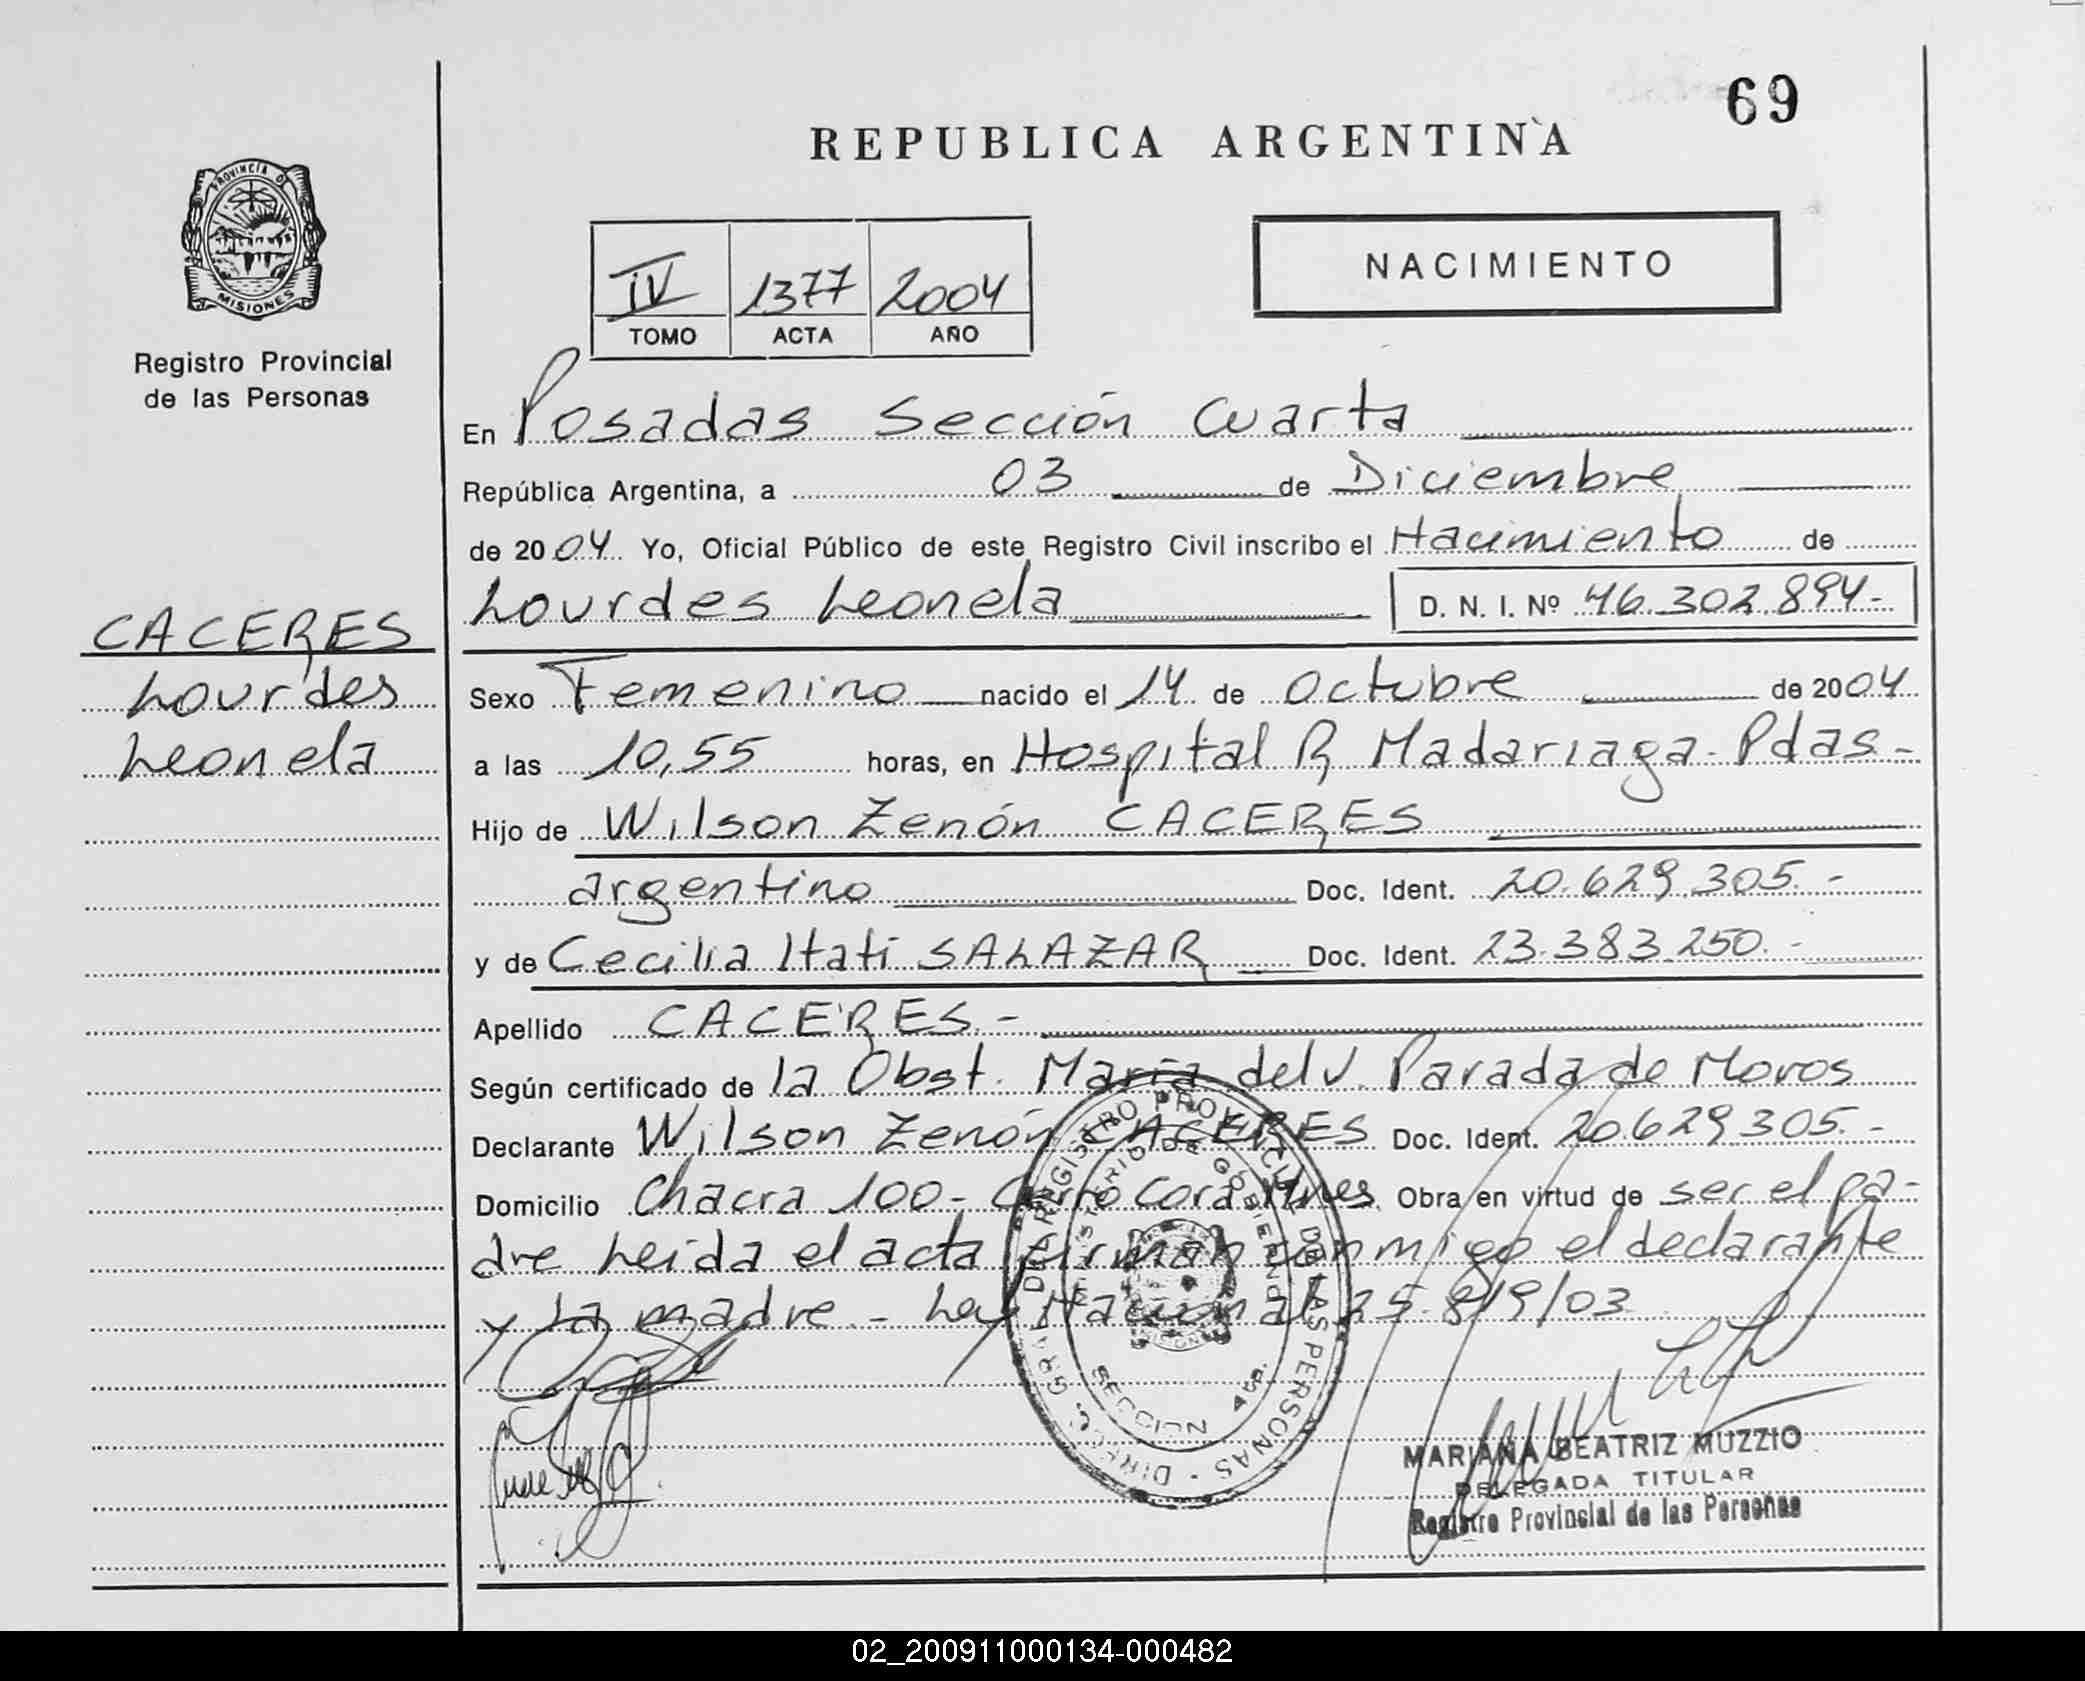 69
REPUBLICA ARGENTINA
PROVINCIA DE
MISIONES
Registro Provincial
de las Personas
IV 1377 2004
TOMO ACTA AÑO
NACIMIENTO
En Posadas Sección Cuarta
República Argentina, a 03 de Diciembre
de 2004 Yo, Oficial Público de este Registro Civil inscribo el Nacimiento de
Lourdes Leonela D. N. I. Nº 46.302.894-
CACERES
Lourdes
Leonela
Sexo Femenino nacido el 14 de Octubre de 2004
a las 10,55 horas, en Hospital R Madariaga-Pdas-
Hijo de Wilson Zenón CACERES
argentino Doc. Ident. 20.629.305.-
y de Cecilia Itatí SALAZAR Doc. Ident. 23.383.250.-
Apellido CACERES.-
Según certificado de la Obst. María del V. Parada de Moros
Declarante Wilson Zenón CACERES Doc. Ident. 20.629.305.-
Domicilio Chacra 100- Cerro Corá Mnes. Obra en virtud de ser el pa-
dre Leida el acta firman conmigo el declarante
y la madre.- Ley Nacional 25.819/03
DIRECC. GRAL. DE REGISTRO PROVINCIAL DE LAS PERSONAS
MINISTERIO DE GOBIERNO
SECCION 4
MARIANA BEATRIZ MUZZIO
DELEGADA TITULAR
Registro Provincial de las Personas
02_200911000134-000482